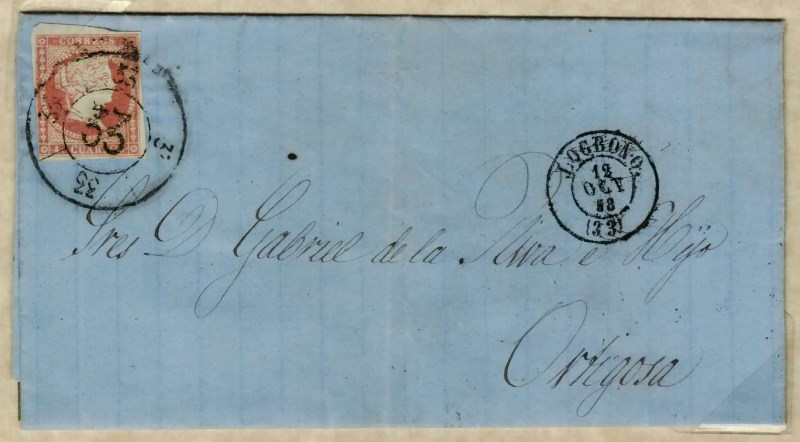 CORREOS
33
33
33
33
LOGROÑO.
12
OCT
58
(33)
Sres D. Gabriel de la Riva e Hijo
Ortigosa